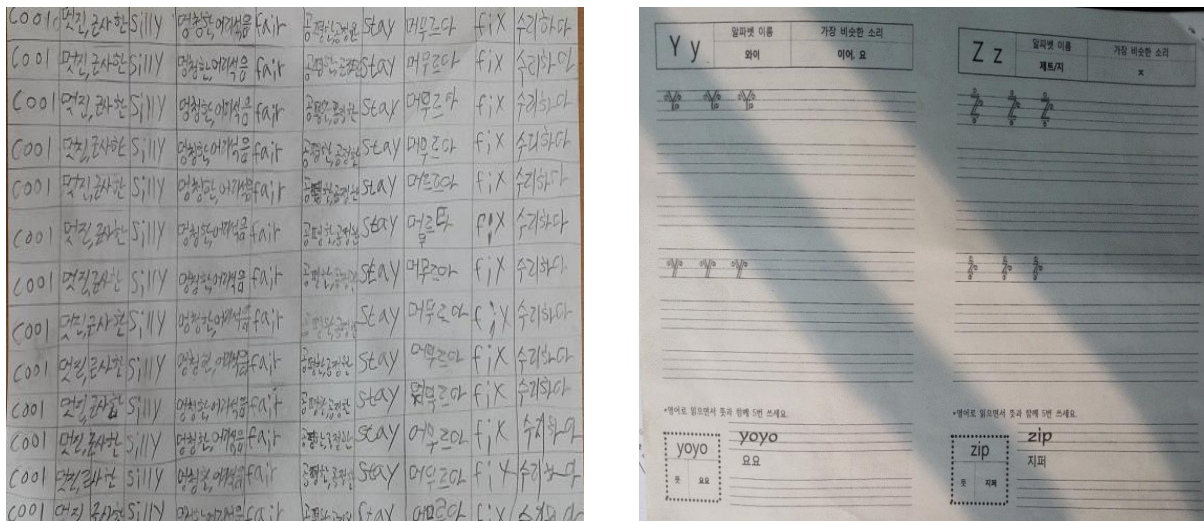 cool 멋진,근사한 silly 멍청한,어리석음 fair 공평한,공정한 stay 머무르다 fix 수리하다
cool 멋진,근사한 silly 멍청한,어리석음 fair 공평한,공정한 stay 머무르다 fix 수리하다
cool 멋진,근사한 silly 멍청한,어리석음 fair 공평한,공정한 stay 머무르다 fix 수리하다
cool 멋진,근사한 silly 멍청한,어리석음 fair 공평한,공정한 stay 머무르다 fix 수리하다
cool 멋진,근사한 silly 멍청한,어리석음 fair 공평한,공정한 stay fix 수리하다
cool 멋진,근사한 silly 멍청한,어리석음 fair 공평한,공정한 stay fix 수리하다
cool 멋진,근사한 silly 멍청한,어리석음 fair 공평한,공정한 stay 머무르다 fix 수리하다
cool 멋진,근사한 silly 멍청한,어리석음 fair 공평한,공정한 stay 머무르다 fix 수리하다
cool 멋진,근사한 silly 멍청한,어리석음 fair 공평한,공정한 stay 머무르다 fix 수리하다
cool 멋진,근사한 silly 멍청한,어리석음 fair 공평한,공정한 stay 머무르다 fix 수리하다
cool 멋진,근사한 silly 멍청한,어리석음 fair 공평한,공정한 stay 머무르다 fix 수리하다
cool 멋진,근사한 silly 멍청한,어리석음 fair 공평한,공정한 stay 머무르다 fix 수리하다
cool 멋진,근사한 silly 멍청한,어리석음 fair 공평한,공정한 stay 머무르다 fix 수리하다
Y y
알파벳 이름 가장 비슷한 소리
와이 이어, 요
Y Y Y
y y y
*영어로 읽으면서 뜻과 함께 5번 쓰세요.
yoyo
뜻 요요
yoyo
요요
Z z
알파벳 이름 가장 비슷한 소리
제트/지 ㅈ
Z Z Z
z z z
*영어로 읽으면서 뜻과 함께 5번 쓰세요.
zip
뜻 지퍼
zip
지퍼